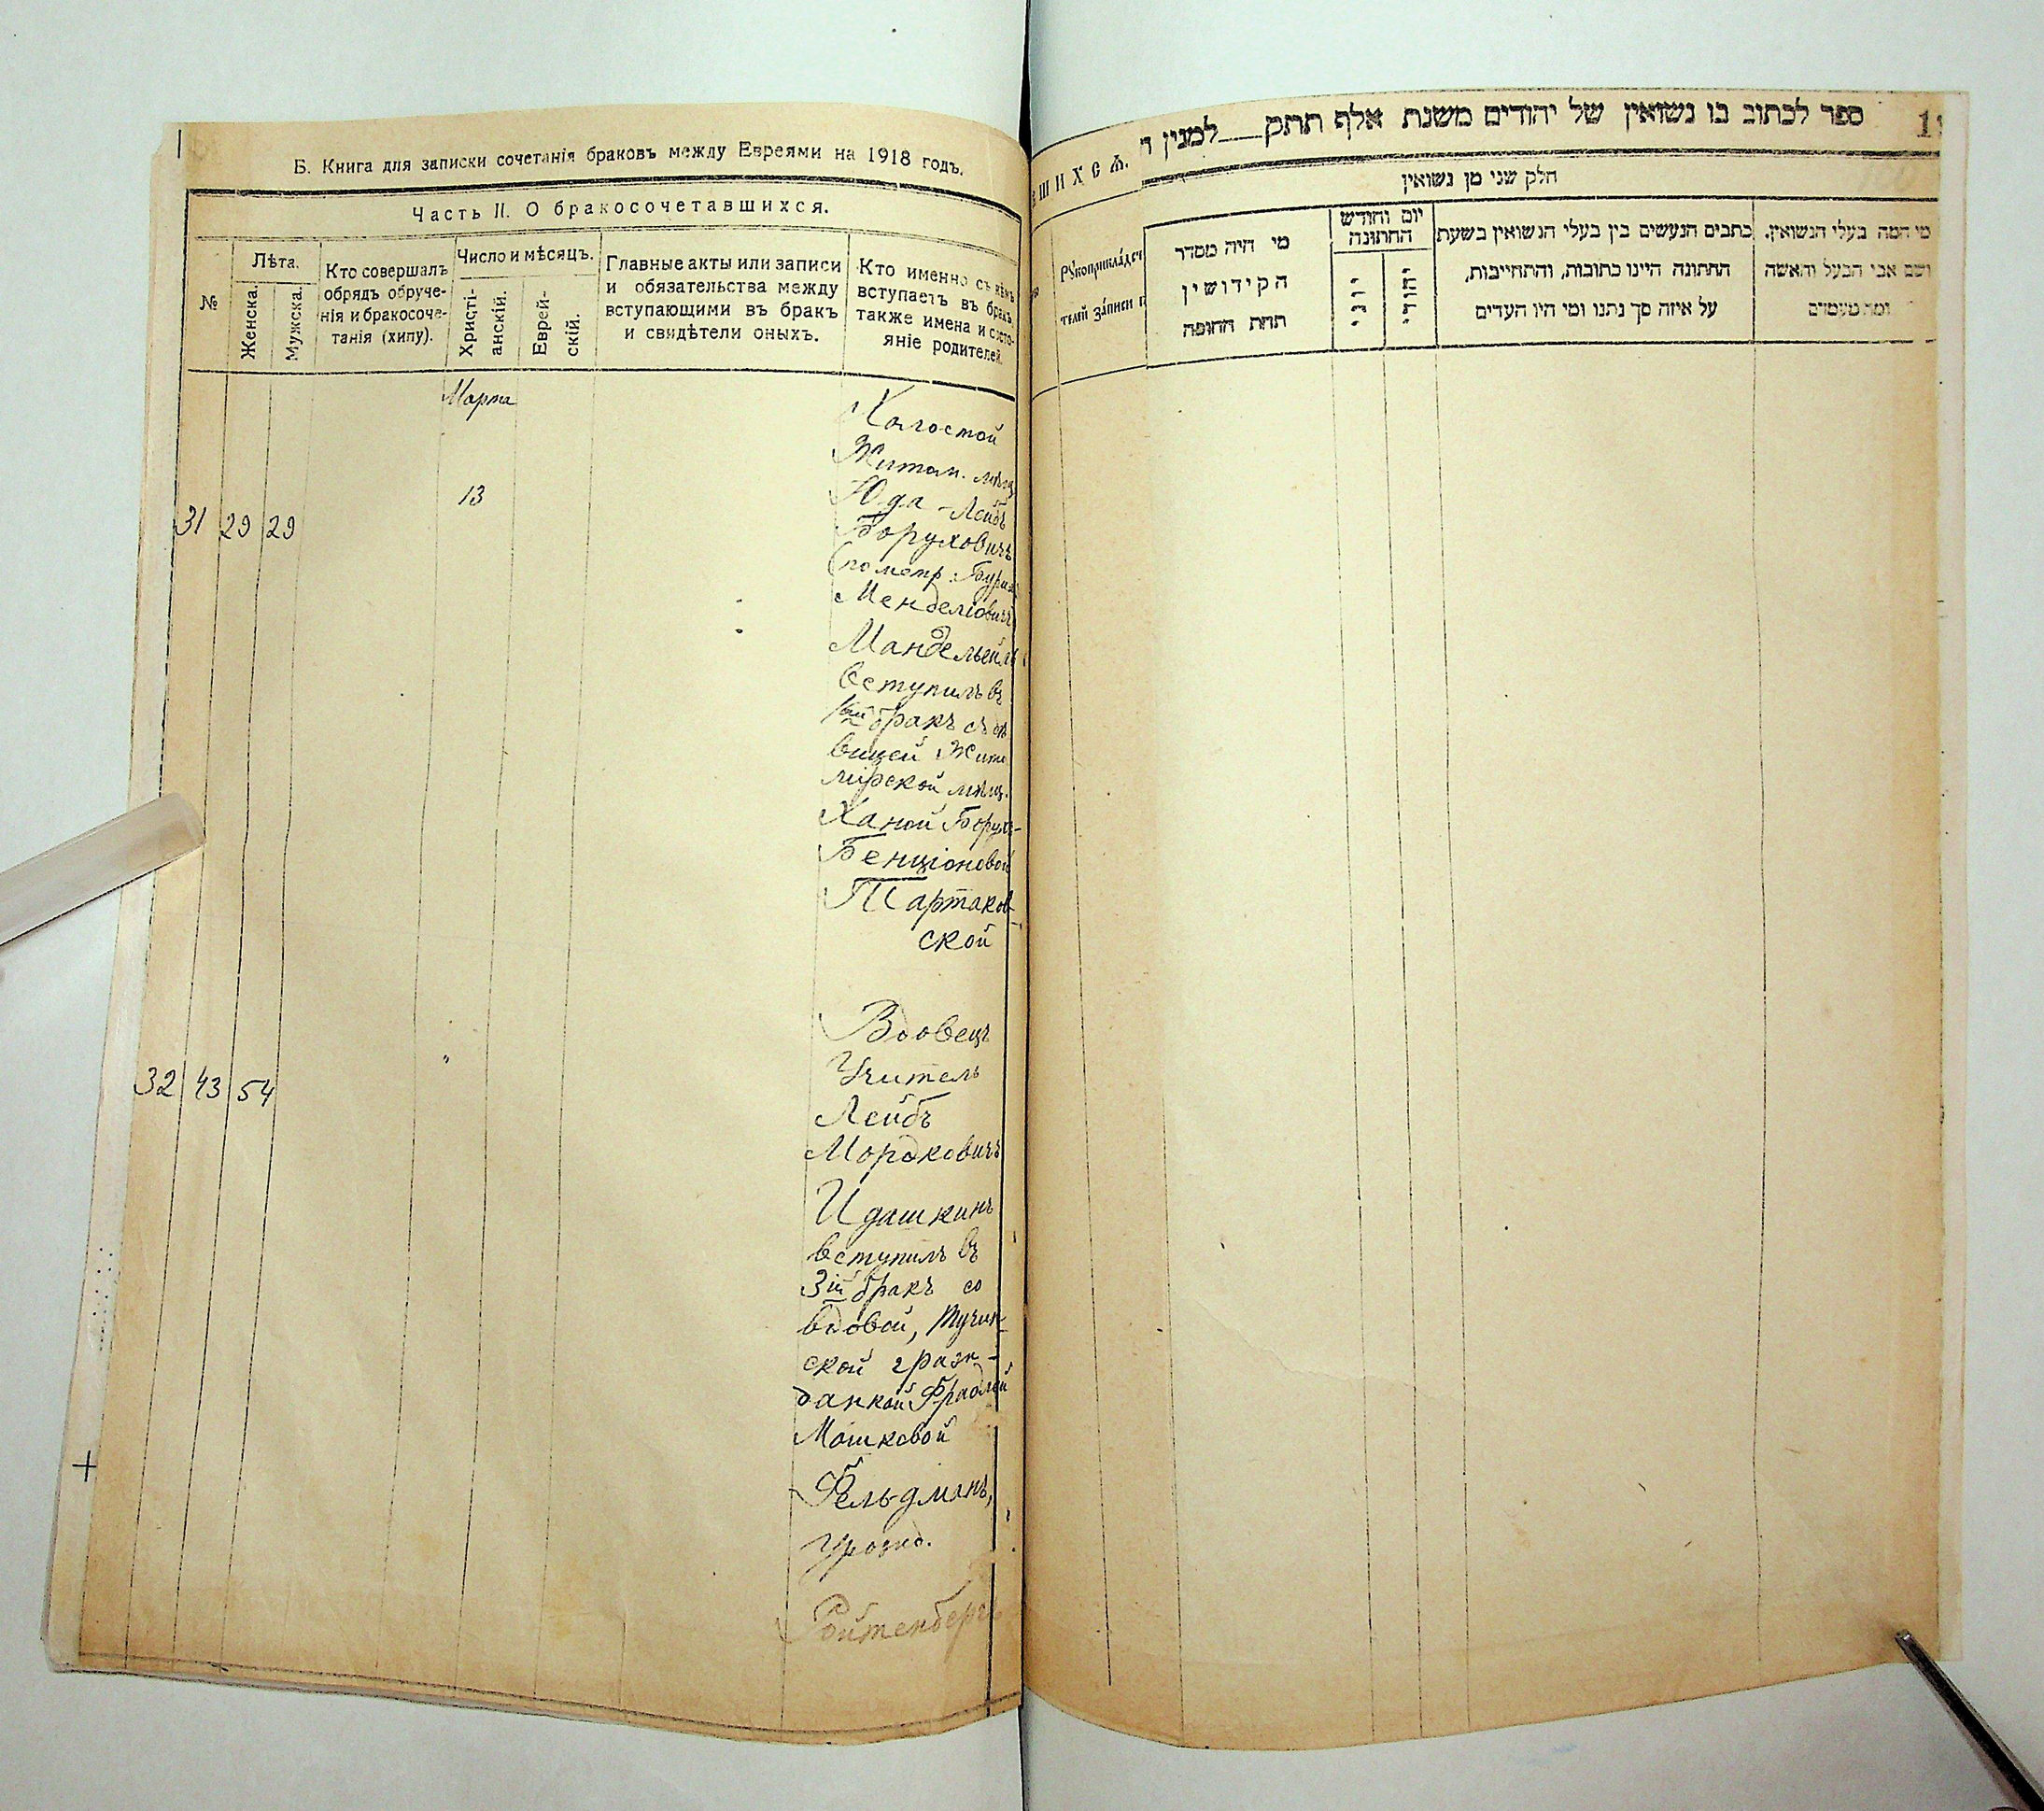 Б. Книга для записки сочетанія браковъ между Евреями на 1918 годъ.
Часть II. О бракосочетавшихся.
№
Лѣта.
Женска.
Мужска.
Кто совершалъ
обрядъ обруче-
нія и бракосоче-
танія (хипу).
Число и мѣсяцъ.
Христі-
анскій.
Еврей-
скій.
Главные акты или записи
и обязательства между
вступающими въ бракъ
и свидѣтели оныхъ.
Кто именно съ кѣмъ
вступаетъ въ бракъ,
также имена и состо-
яніе родителей.
Марта
31 29 29
13
Холостой
Житом. мѣщ
Юда-Лейбъ
Боруховичъ
(по метр.
Менделіовичъ
вступилъ въ
1ый бракъ съ дѣ
вицей Жито
мірской мѣщ.
Ханой Борухъ-
Бенціоновой
Тартаков-
ской
32 43 54
"
Вдовецъ
Учитель
Лейбъ
Мордковичъ
Идашкинъ
вступилъ въ
3ій бракъ со
вдовой, Тучин-
ской граж-
данкой Фрадлей
Мошковой
Фельдманъ,
урожд.
Ройтенбергъ
ספר לכתוב בו נשואין של יהודים משנת אלף תתק למנין ר
1
ШИХСЯ.
חלק שני מן נשואין
Рукоприкладч
телей записи п
מי היה מסדר
הקידושין
תחת החופה
יום וחודש
החתונה
יוני
יהודי
כתבים הנעשים בין בעלי הנשואין בשעת
החתונה היינו כתובות, והתחייבות,
על איזה סך נתנו ומי היו העדים
מי המה בעלי הנשואין.
ושם אבי הבעל והאשה
ומה מעמדם